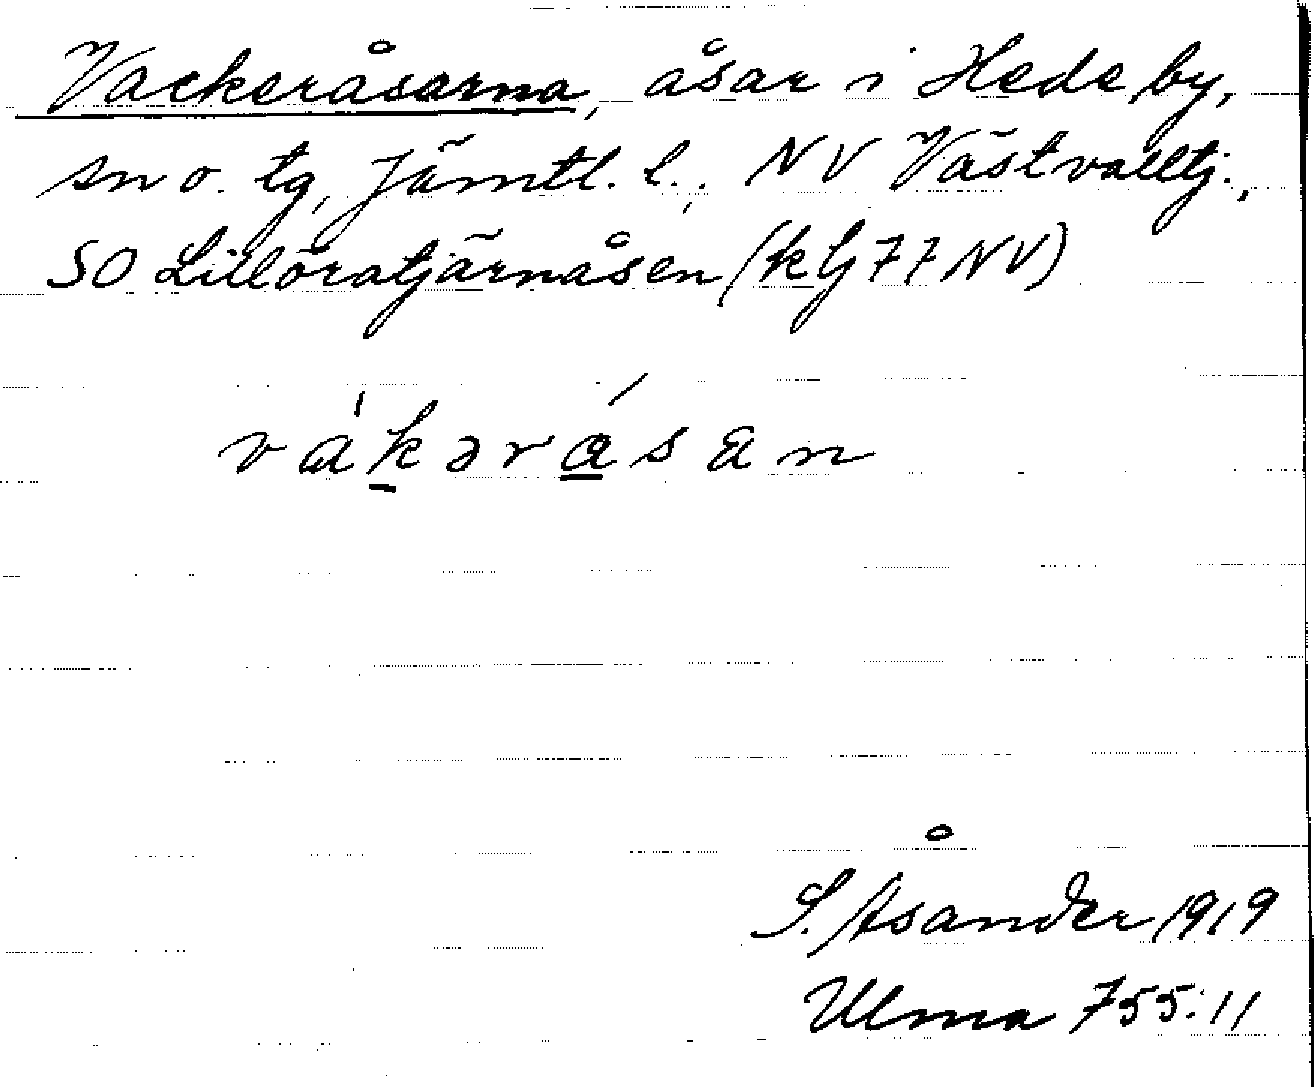 Vackeråsarna, åsar i Hede by,
sn o. tg, Jämtl. l., NV Västvalltj.,
SO Lillöratjärnåsen (k bj 77 NV)
va̍kərásan
S. Åsander 1919
Ulma 755:11